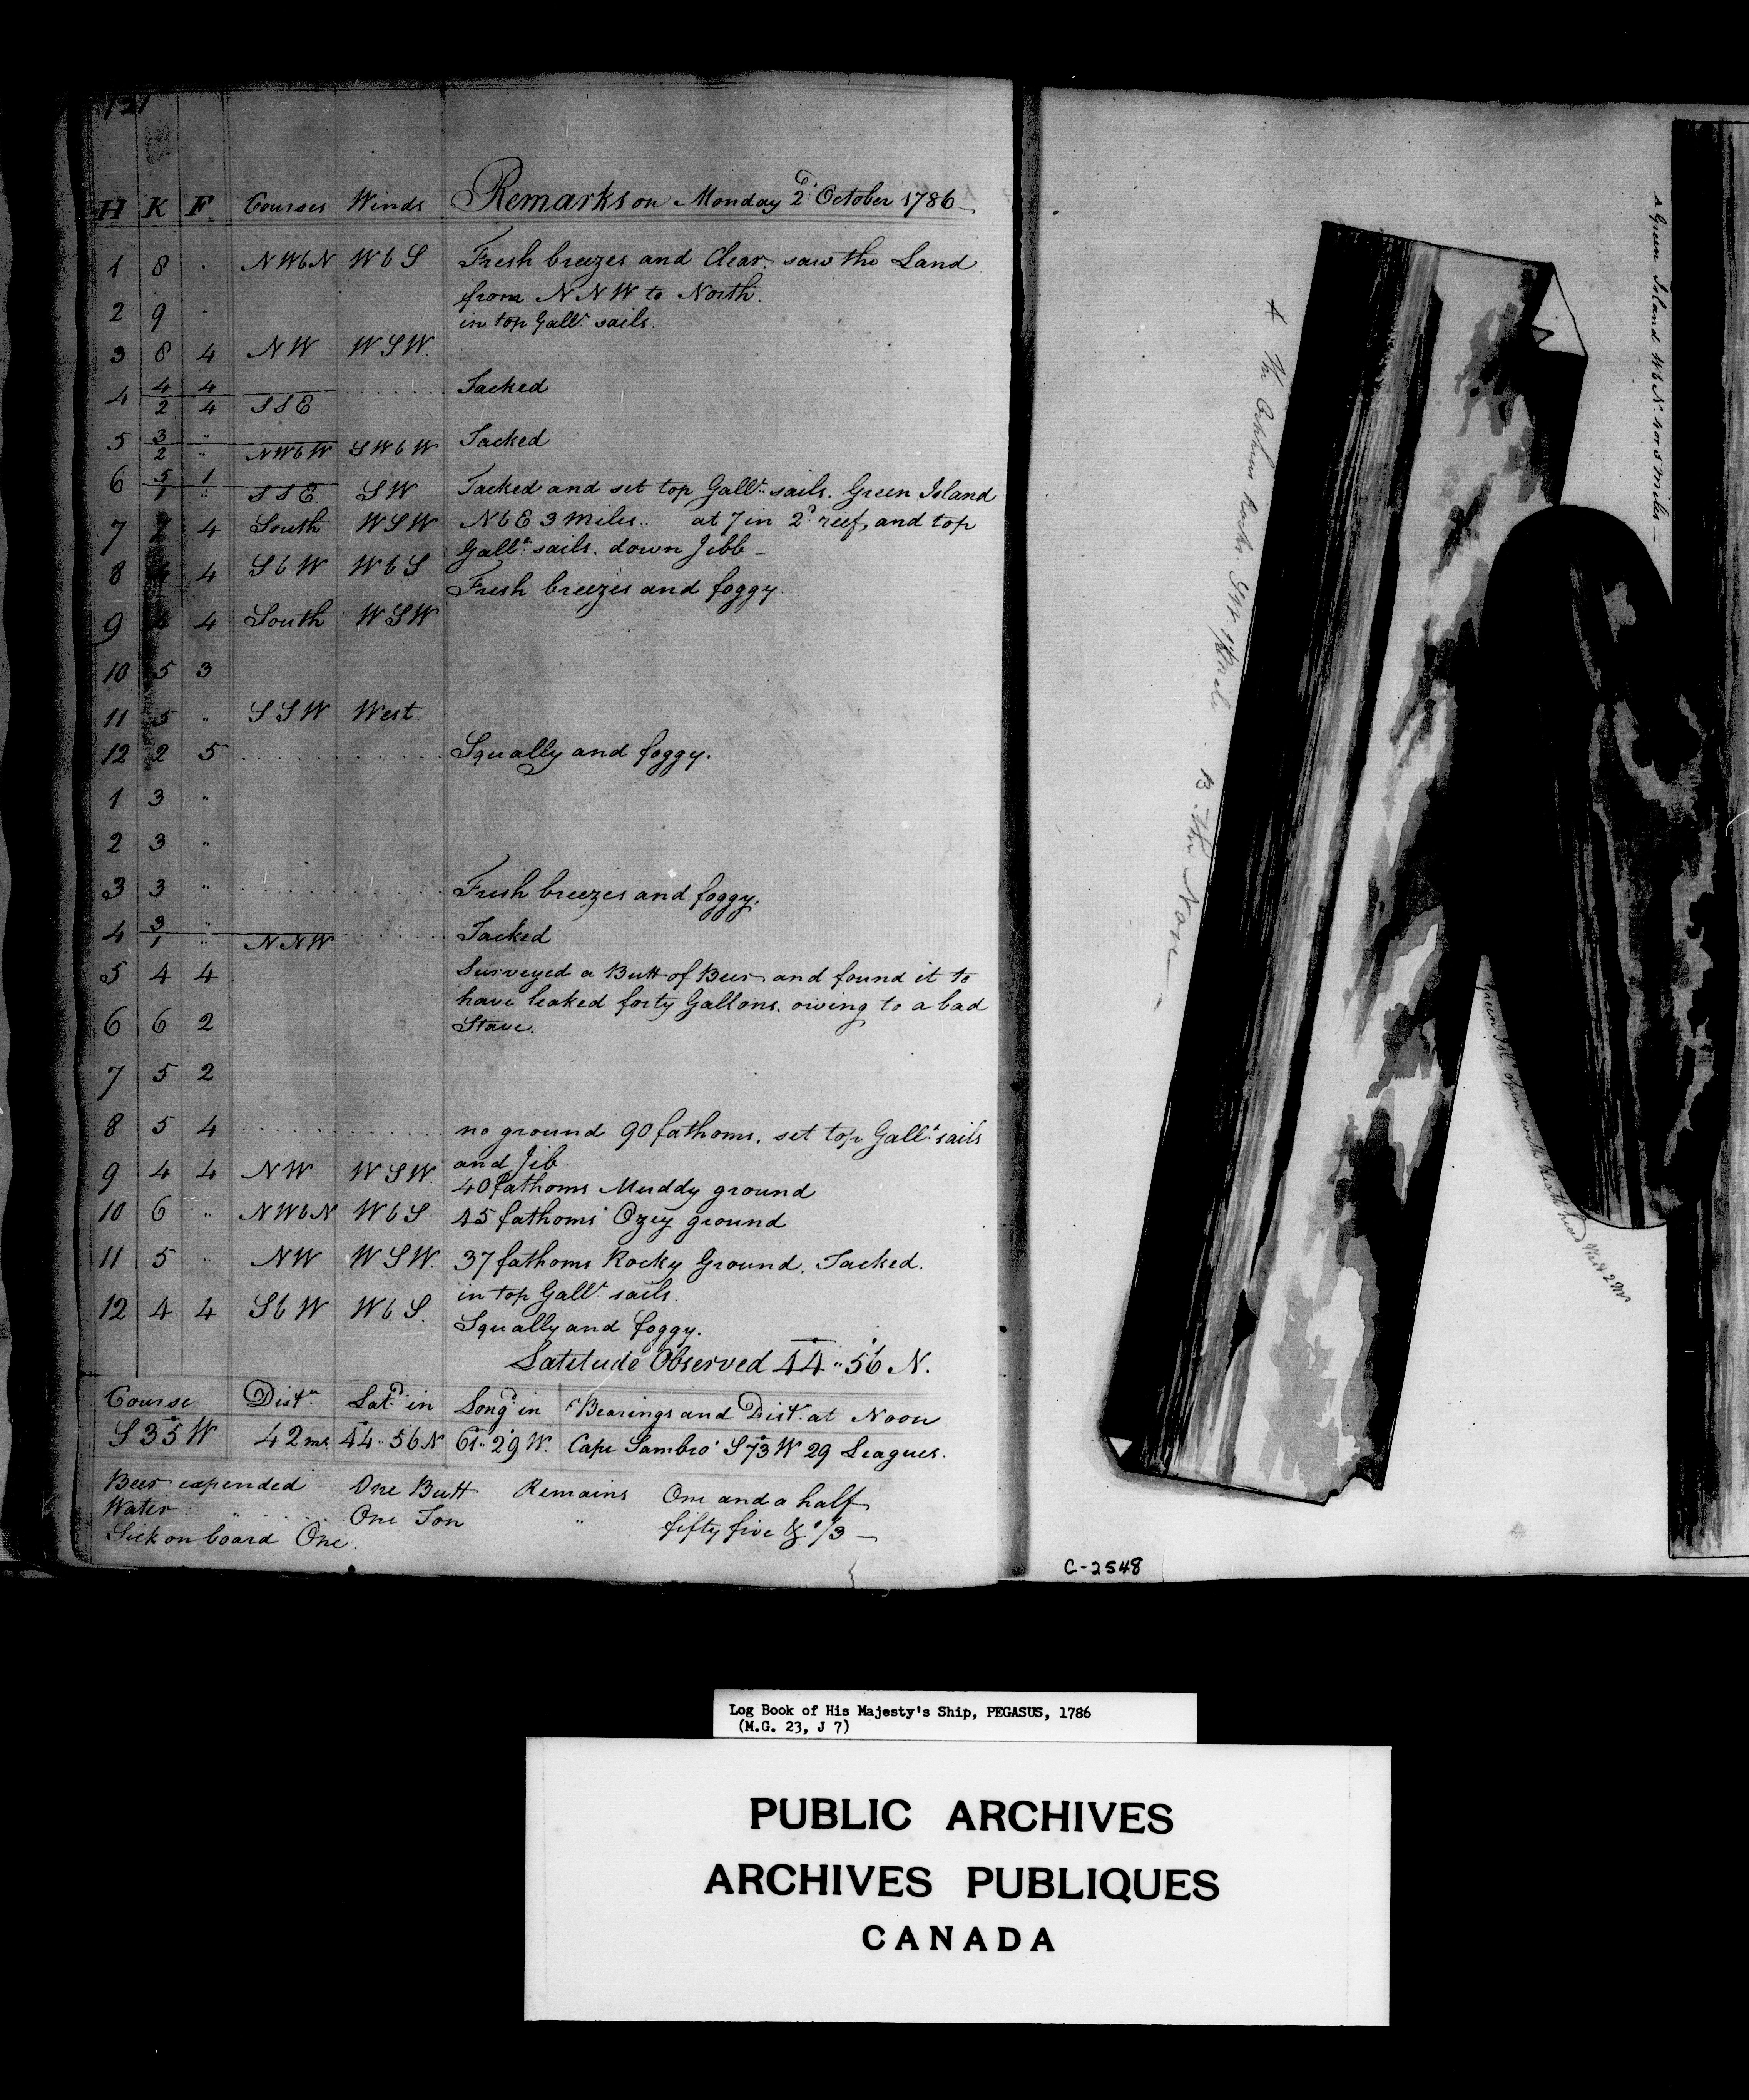 121
H K F Courses Winds Remarks on Monday 2d October 1786
1 8 . NWbN WbS Fresh breezes and Clear. saw the Land
from NNW to North.
2 9 . in top Gallt sails.
3 8 4 NW WSW.
4 4 4 Tacked
2 4 SSE
5 3 " Tacked
2 " NWbW SWbW
6 5 1 Tacked and set top Gallt sails. Green Island
1 " SSE SW
7 7 4 South WSW NbE 3 Miles.. at 7 in 2d reef, and top
Gallt sails. down Jibb
8 4 SbW WbS Fresh breezes and foggy.
9 4 4 South WSW
10 5 3
11 5 " SSW West
12 2 5 Squally and foggy.
1 3 "
2 3 "
3 3 " Fresh breezes and foggy.
4 3 " Tacked
1 " NNW
5 4 4 Surveyed a Butt of Beer and found it to
have leaked forty Gallons. owing to a bad
6 6 2 Stave.
7 5 2
8 5 4 no ground 90 fathoms. set top Gallt sails
and Jib
9 4 4 NW WSW. 40 fathoms Muddy ground
10 6 " NWbN WbS 45 fathoms Ozey ground
11 5 " NW WSW. 37 fathoms Rocky Ground. Tacked.
in top Gallt sails.
12 4 4 SbW WbS. Squally and foggy.
Latitude Observed 44..56 N.
Course Distce Latd in Longd in Bearings and Distce at Noon
S 35 W 42 ms 44..56 N 61..29 W. Cape Sambro' S 73 W 29 Leagues.
Beer expended One Butt Remains One and a half
Water " One Ton " fifty five & 1/3
Sick on board One.
A Green Island WbN. 4 or 5 Miles
A The Rocks B The Nore
Green Isld open with
C-2548
Log Book of His Majesty's Ship, PEGASUS, 1786
(M.G. 23, J 7)
PUBLIC ARCHIVES
ARCHIVES PUBLIQUES
CANADA